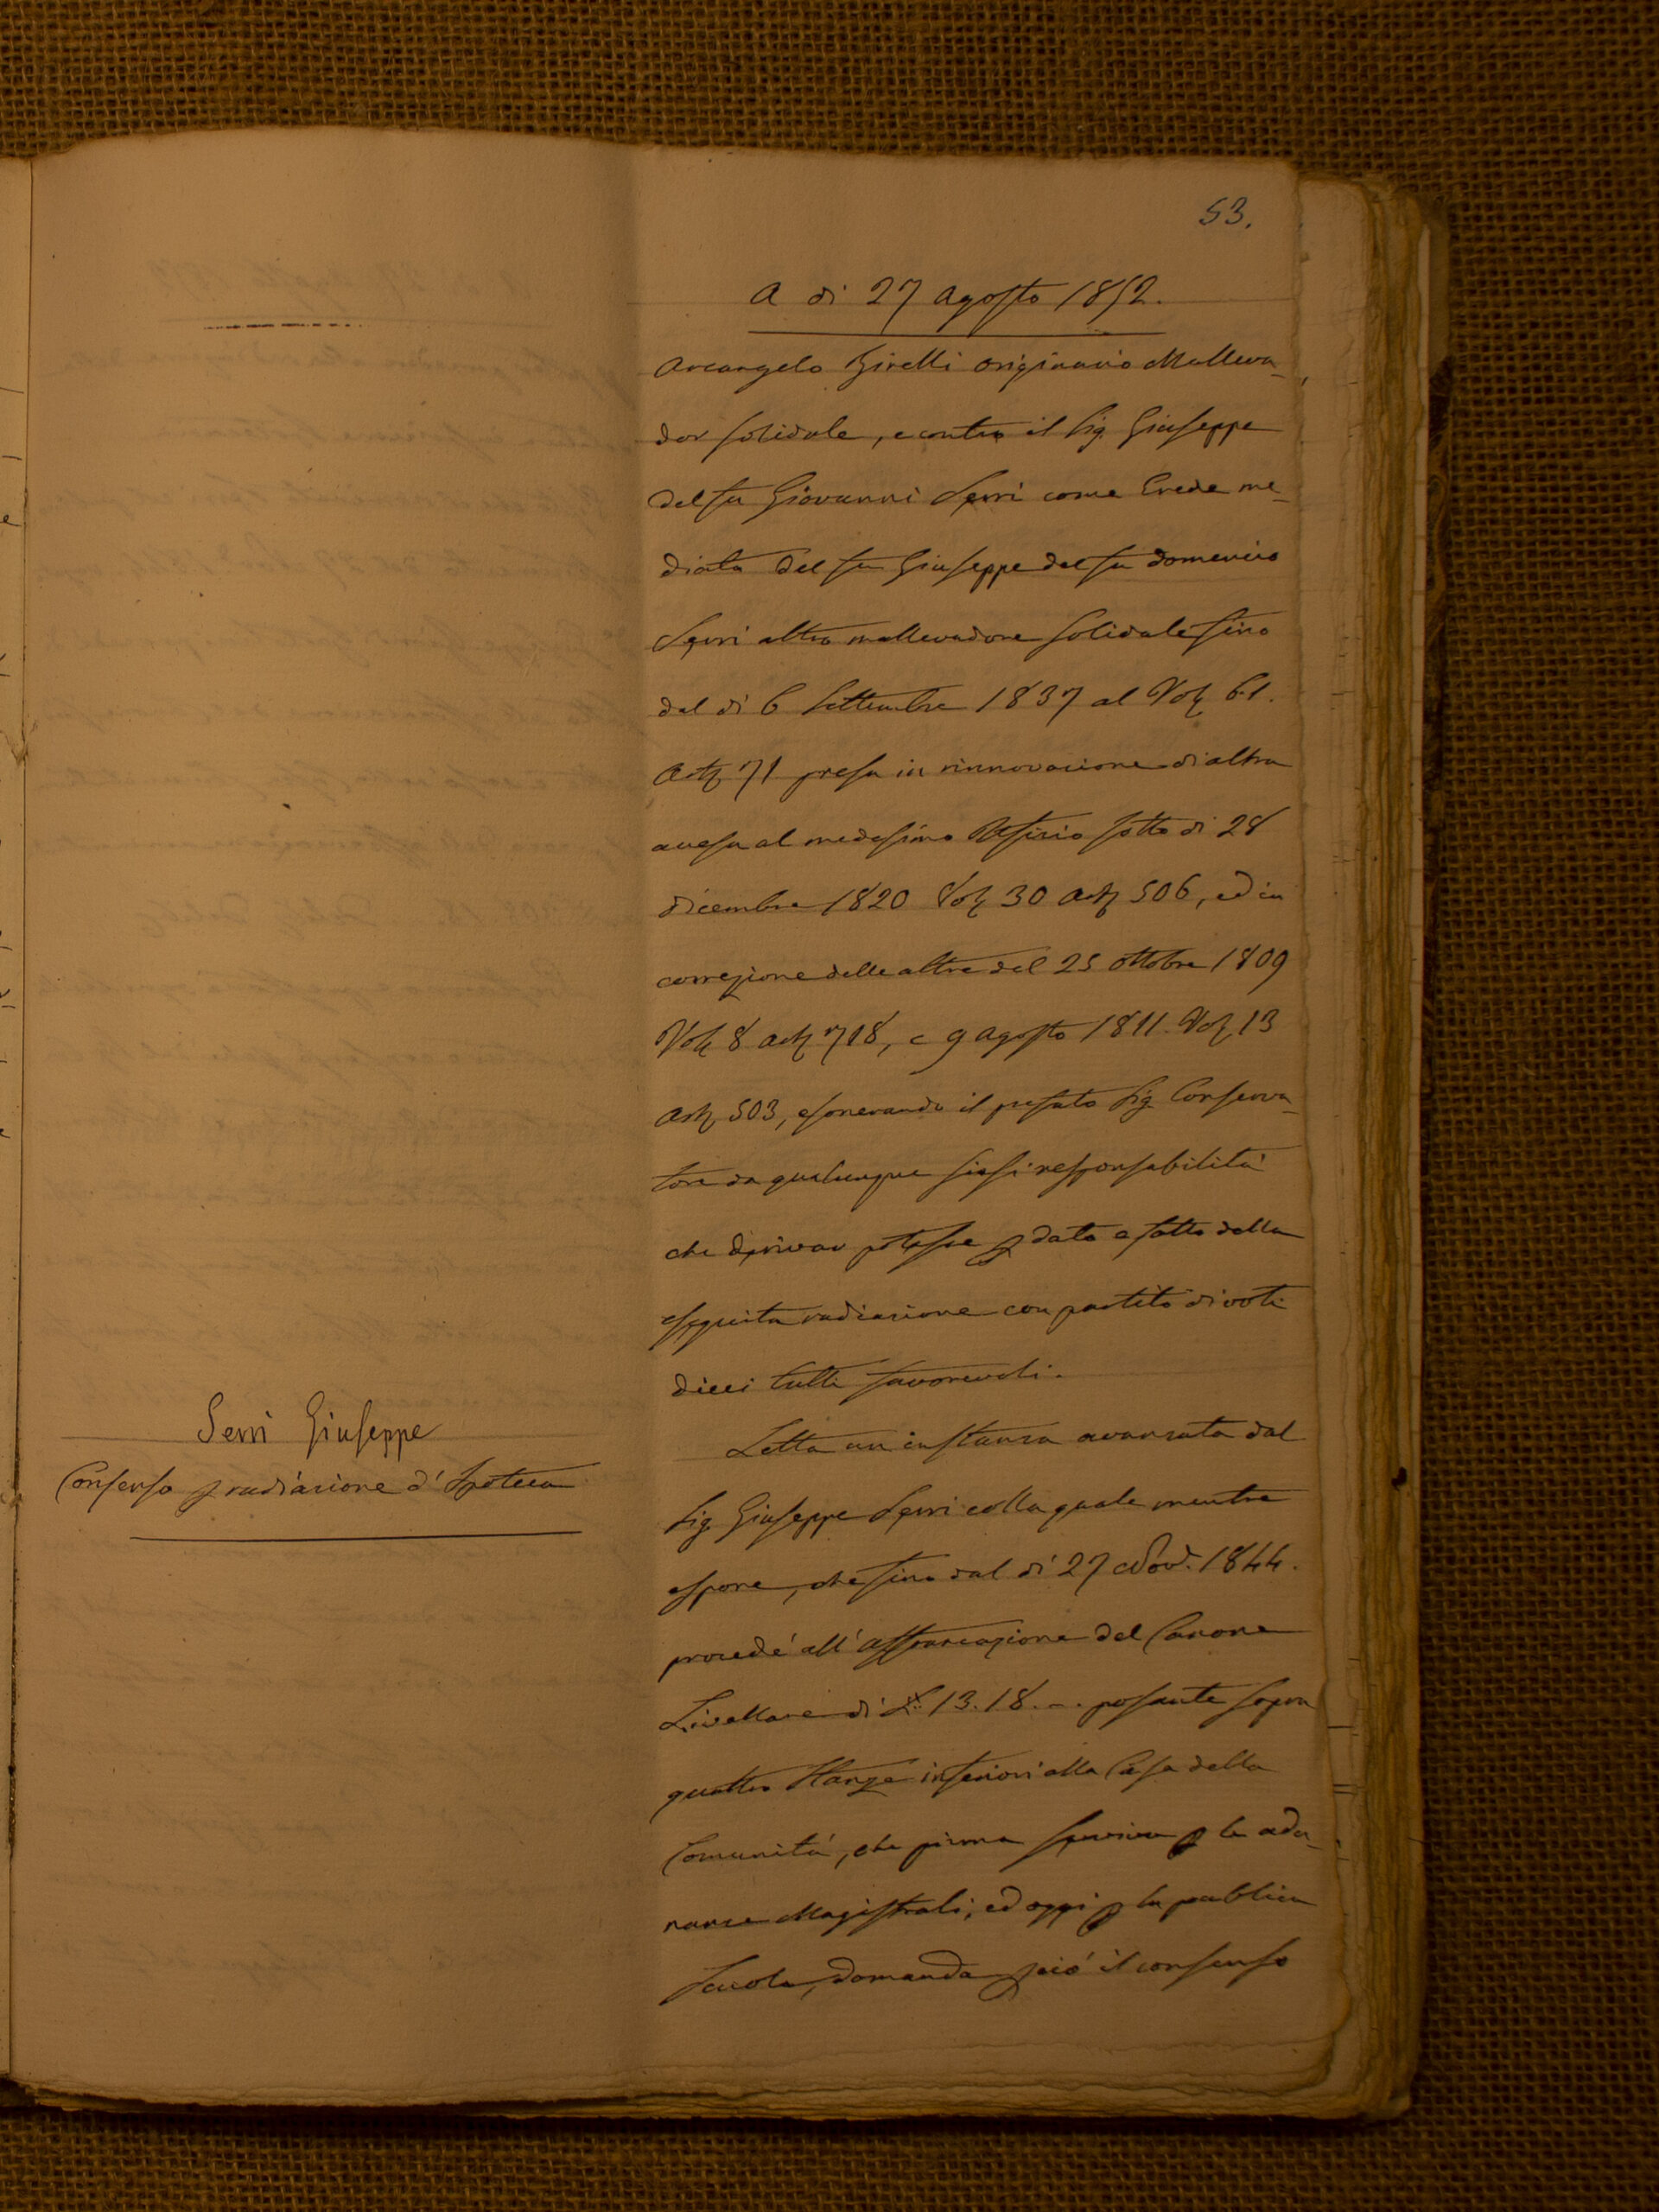 53.
A di 27 Agosto 1852.
Arcangelo Girelli originario Malleva-
dor solidale, e contro il Sig. Giuseppe
del fu Giovanni Serri come Erede me-
diato del fu Giuseppe del fu Domenico
Serri altro mallevadore solidale fino
dal di 6 Settembre 1837 al Vol. 61.
Art. 71 presa in rinnovazione di altra
accesa al medesimo Ufizio sotto di 28
Dicembre 1820 Vol. 30 Art. 506, ed in
correzione delle altre del 25 Ottobre 1809
Vol. 8 Art. 718, e 9 Agosto 1811. Vol. 13
Art. 503, esonerando il prefato Sig. Conserva-
tore da qualunque siasi responsabilità
che derivar potesse p dato e fatto della
eseguita radiazione con partito di voti
dieci tutti favorevoli.
Serri Giuseppe
Consenso p radiazione d'Ipoteca
Letta un instanza avanzata dal
Sig. Giuseppe Serri colla quale mentre
espone, che fino dal dì 27 Nov. 1844.
procedé all'affrancazione del Canone
Livellare di £ 13.18.-. posante sopra
quattro Stanze inferiori alla Casa della
Comunità, che prima serviva p le adu-
nanze Magistrali, ed oggi p la pubblica
Scuola, domanda pciò il consenso